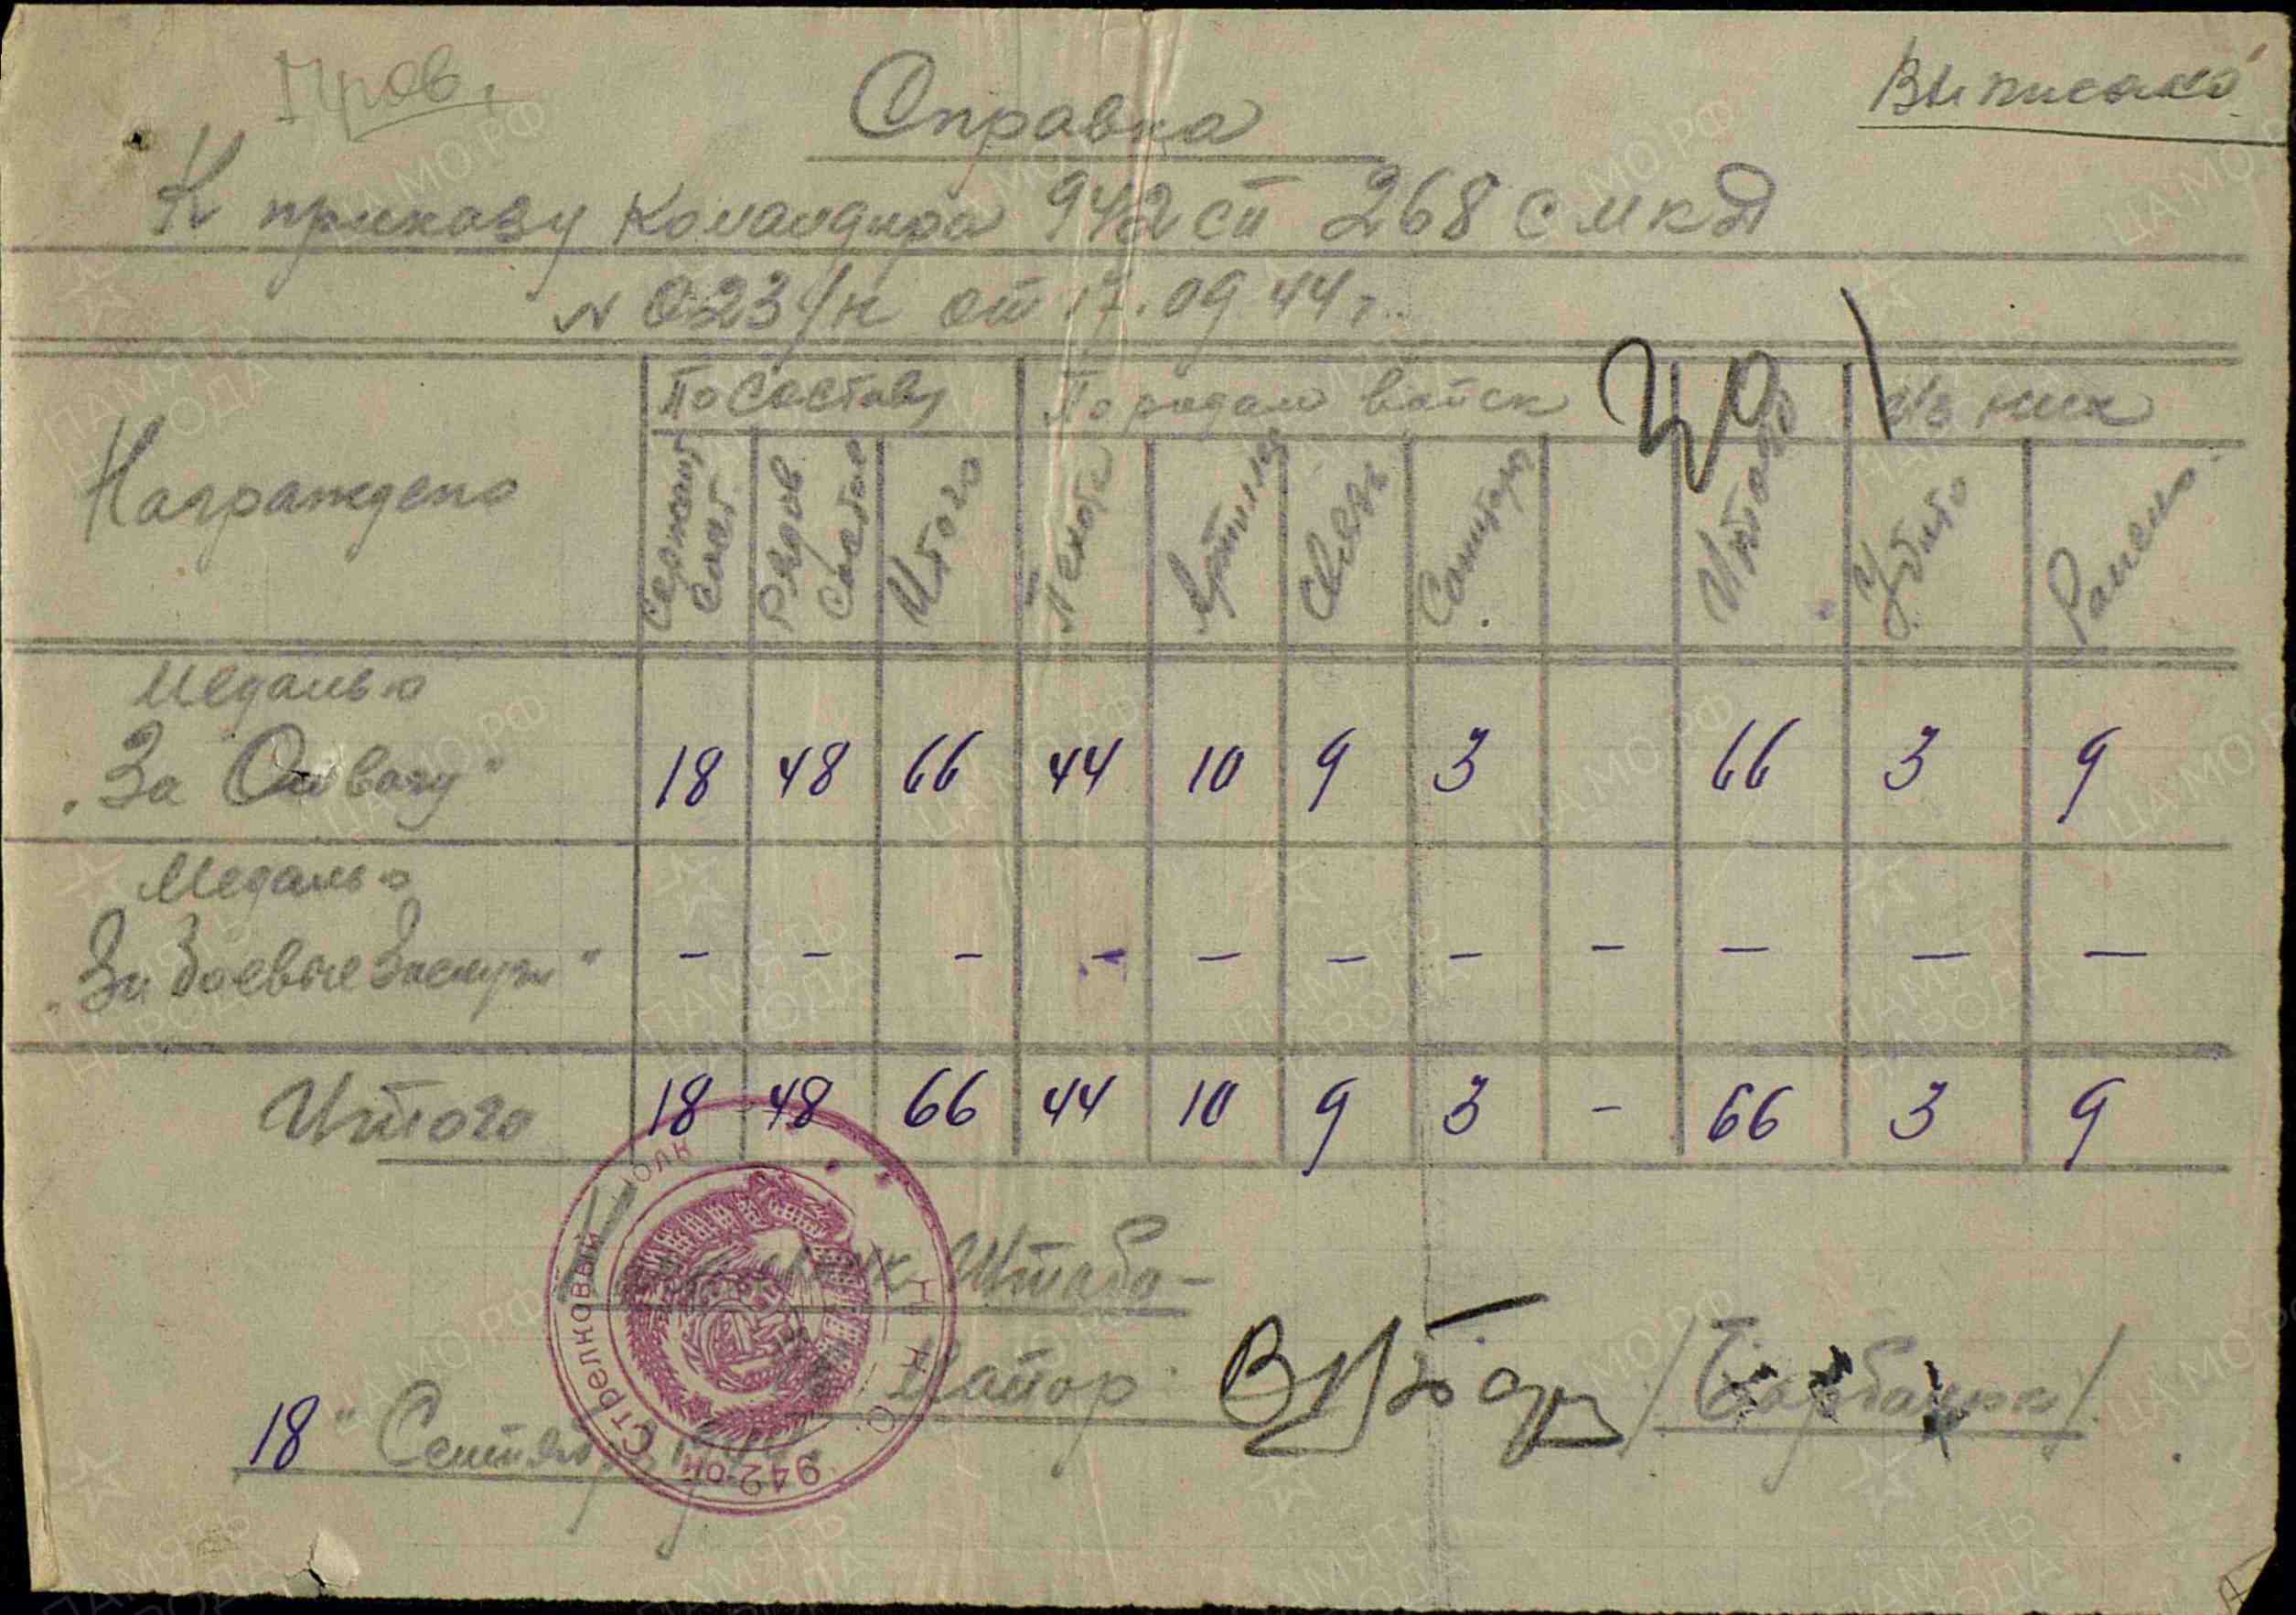 Пров.
Выписано
Справка
К приказу командира 942 сп 268 с мкд
N 023/н от 17.09.44г.
Награждено
По составу
По родам войск
из них
Сержант. сост.
Рядов состав
Итого
Пехота
Артиллер
Связь
Санитары
Итого
Убито
Ранено
Медалью
"За Отвагу" 18 48 66 44 10 9 3 66 3 9
Медалью
"За Боевые Заслуги" - - - - - - - - - - -
Итого 18 48 66 44 10 9 3 - 66 3 9
Начальник Штаба-
Майор
18 " Сентября
942-ой Стрелковый полк